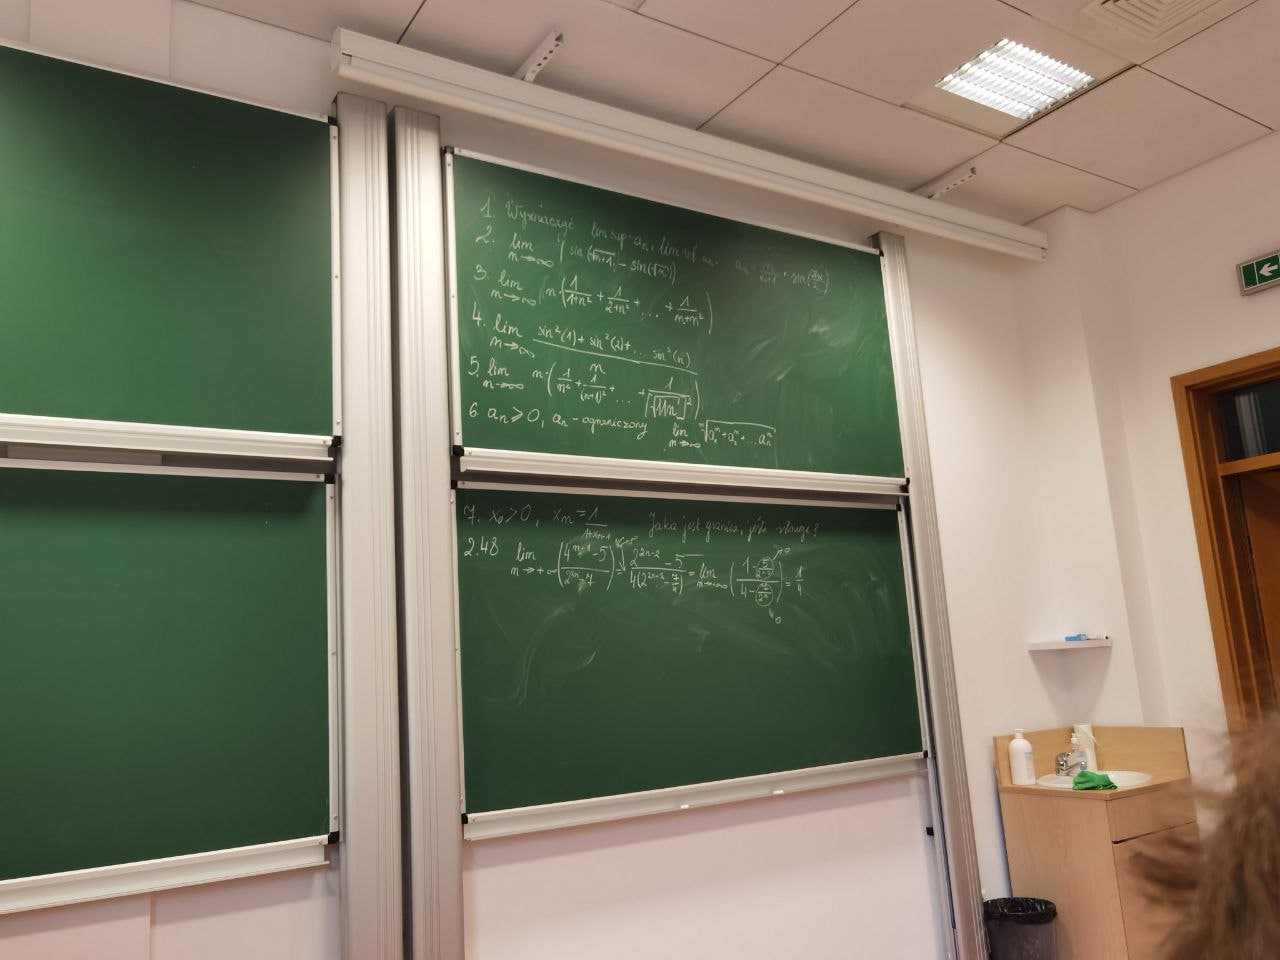 1. Wyznaczyć lim sup aₙ, lim inf aₙ. aₙ = n/(n+1) · sin(πn/2)
2. lim n→∞ (sin(√(n+1)) - sin(√n))
3. lim n→∞ n·(1/(1+n²) + 1/(2+n²) + ... + 1/(n+n²))
4. lim n→∞ (sin²(1) + sin²(2) + ... sin²(n))/n
5. lim n→∞ n·(1/n² + 1/(n+1)² + ... + 1/[√(11n)]²)
6. aₙ ≥ 0, aₙ - ograniczony lim n→∞ ⁿ√(a₁ⁿ + a₂ⁿ + ... aₙⁿ)
7. x₀ > 0, xₙ = 1/(1+xₙ₋₁) Jaka jest granica, jeśli istnieje?
2.48 lim n→+∞ (4ⁿ⁻¹ - 5)/(2²ⁿ - 7) = (2²ⁿ⁻² - 5)/(4(2²ⁿ⁻² - 7/4)) = lim n→+∞ (1 - 5/2²ⁿ⁻²)/(4 - 7/2²ⁿ) = 1/4